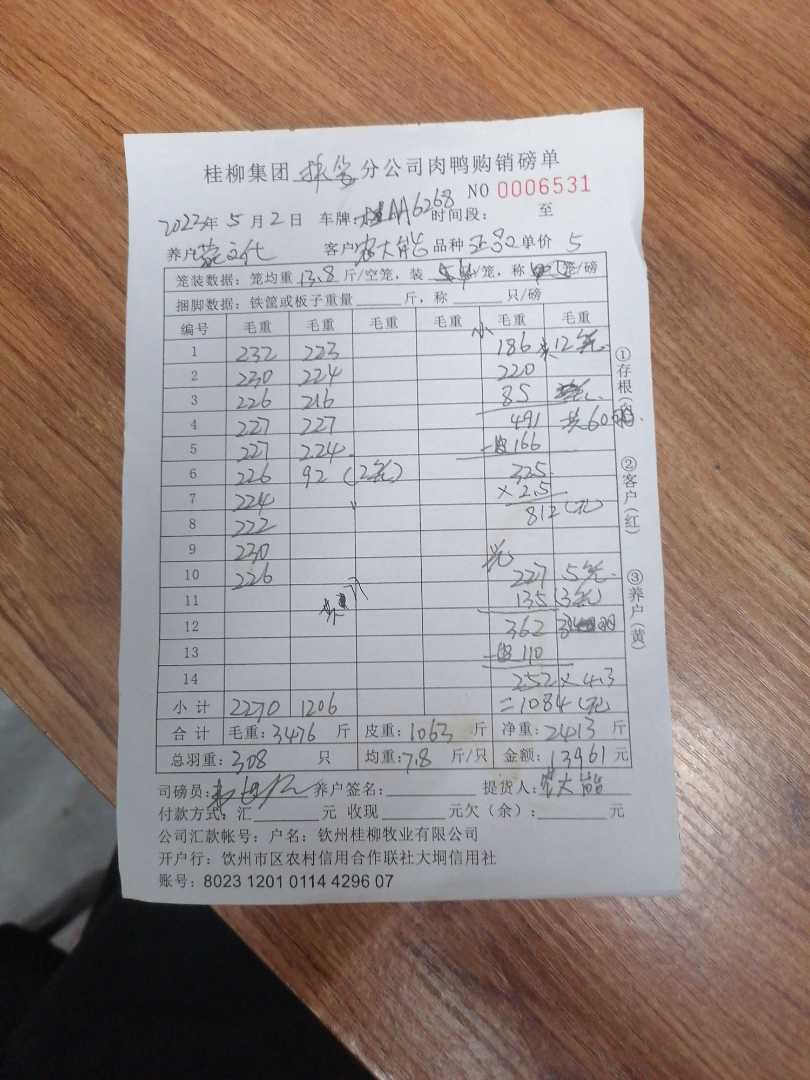 桂柳集团 分公司肉鸭购销磅单
NO 0006531
2022年 5月2日 车牌: AA6268 时间段: 至
养户 文代 客户 农大能 品种 正品 单价 5
笼装数据:笼均重13.8斤/空笼,装 /笼,称 笼/磅
捆脚数据:铁筐或板子重量 斤,称 只/磅
编号 毛重 毛重 毛重 毛重 毛重 毛重
小
1 232 223 186 共12笼
2 230 224 220
3 226 216 85
4 227 227 491 共60
5 227 224 -皮166
6 226 92 (2笼) 325
7 224 ×2.5
8 222 812(元)
9 230
10 226 227 5笼
11 135 (3笼)
12 362
13 -皮110
14 252×4.3
小计 2270 1206 =1084(元)
合计 毛重:3476斤 皮重:1063斤 净重:2413斤
总羽重:308 只 均重:7.8斤/只 金额:13961元
司磅员: 养户签名: 提货人:农大能
付款方式:汇 元 收现 元欠(余): 元
公司汇款帐号:户名:钦州桂柳牧业有限公司
开户行:饮州市区农村信用合作联社大垌信用社
账号:8023 1201 0114 4296 07
①存根(
②客户(红)
③养户(黄)